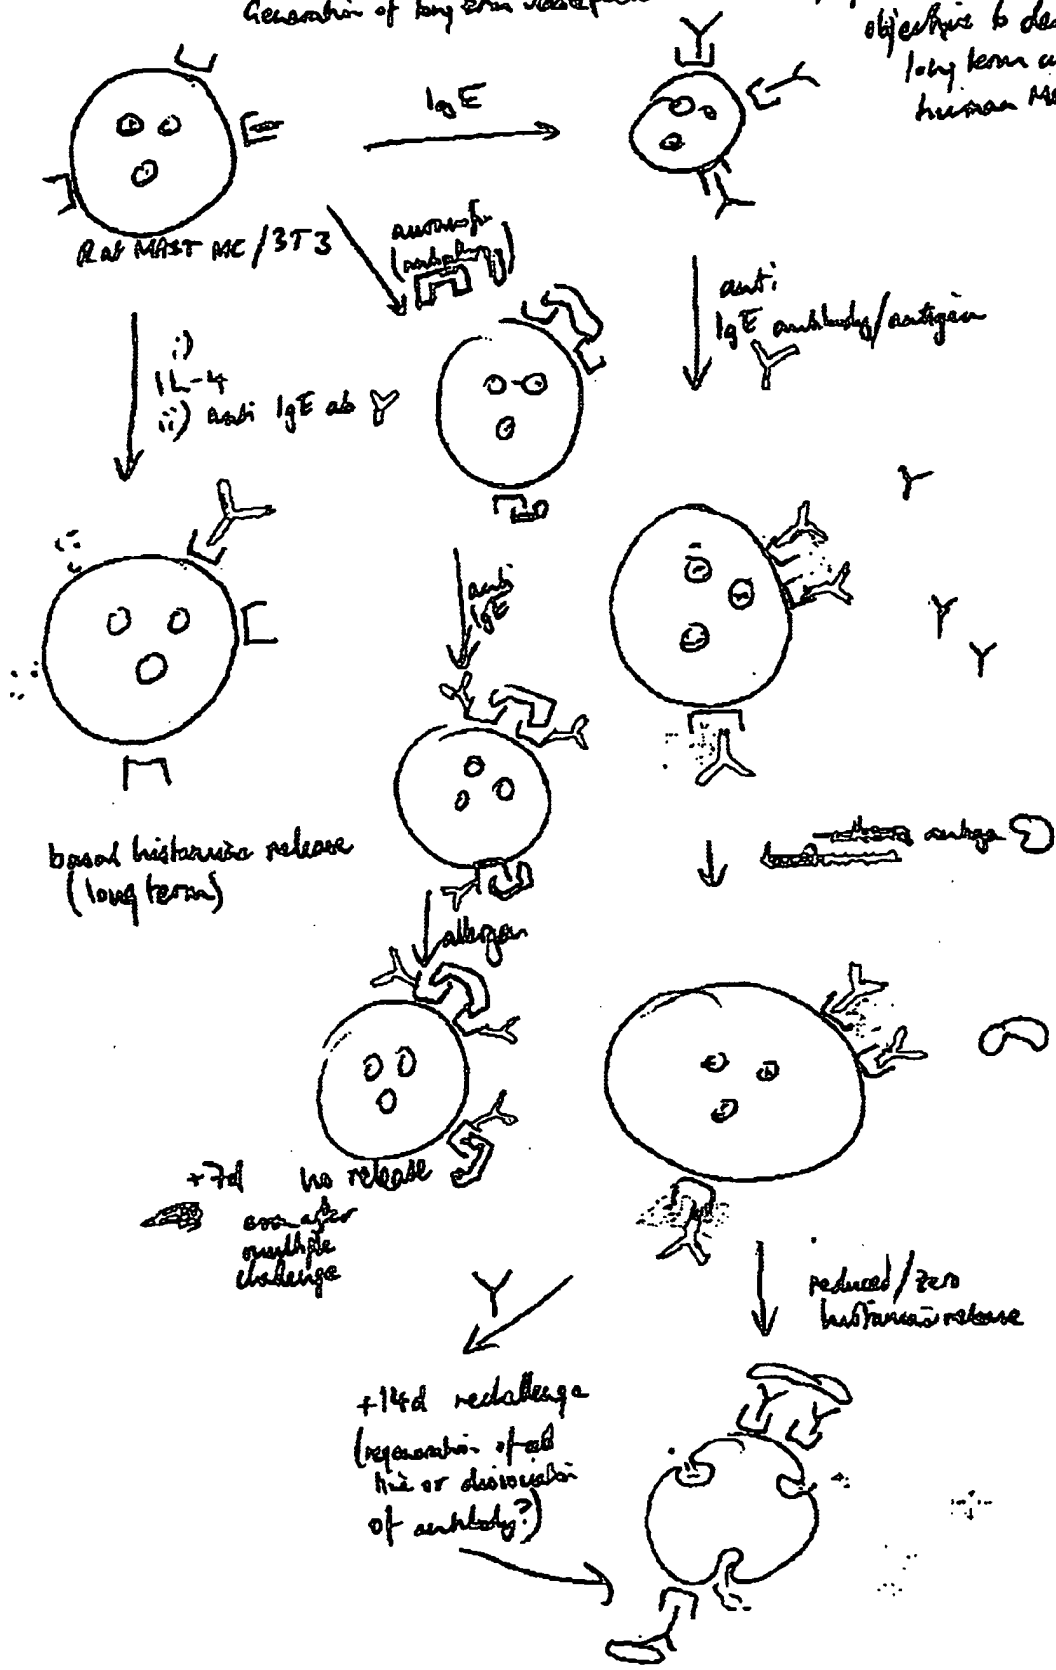 Generation of long term
objective to
long term
human
IgE
Rat MAST MC/3T3
anti
IgE antibody/antigen
i)
IL-4
ii) anti IgE ab
anti
IgE
basal histamine release
(long term)
antigen
allergen
+7d no release
even after
multiple
challenge
reduced/zero
histamine release
+14d rechallenge
(regeneration of cell
line or dissociation
of antibody?)